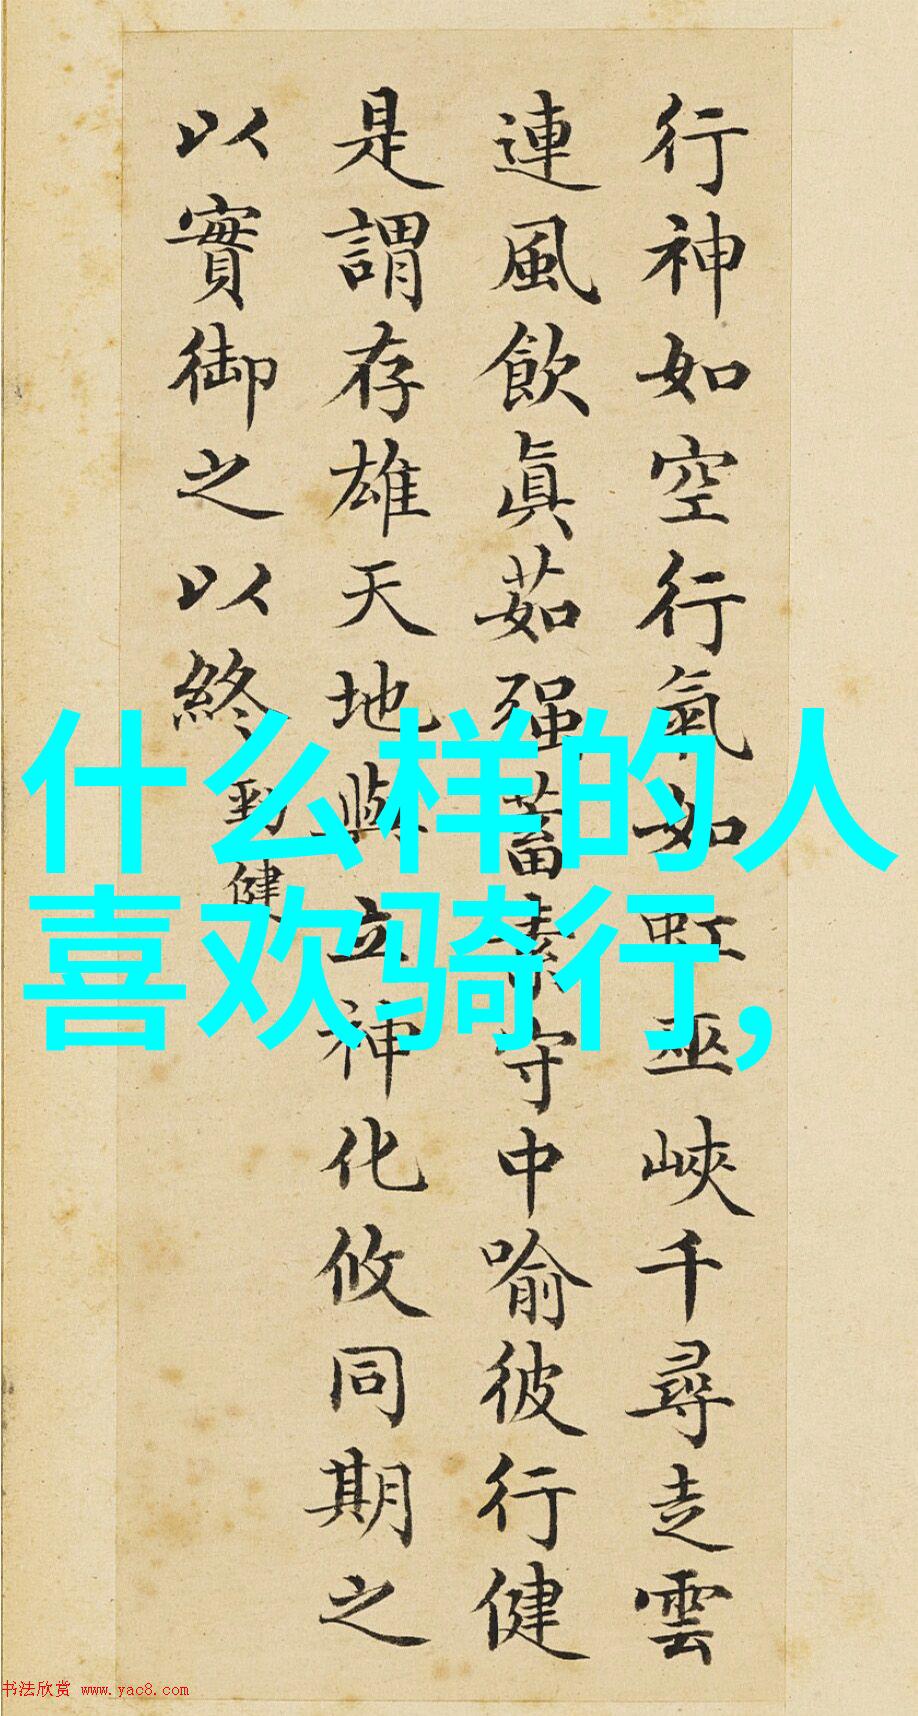 行神如空行氣如虹巫峽千尋走雲
連風飲眞茹强蓄素守中喻彼行健
是謂存雄天地與立神化攸同期之
以實御之以終勁健
什么样的人
喜欢骑行,
书法欣赏 www.yac8.com